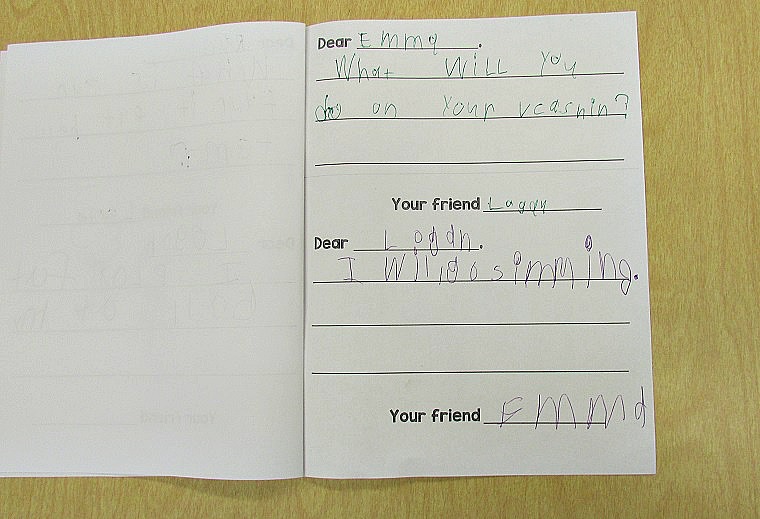 Dear Emma.
What Will You
do on Your vcashin?
Your friend Logan
Dear Logan.
I Will go simming.
Your friend Emma